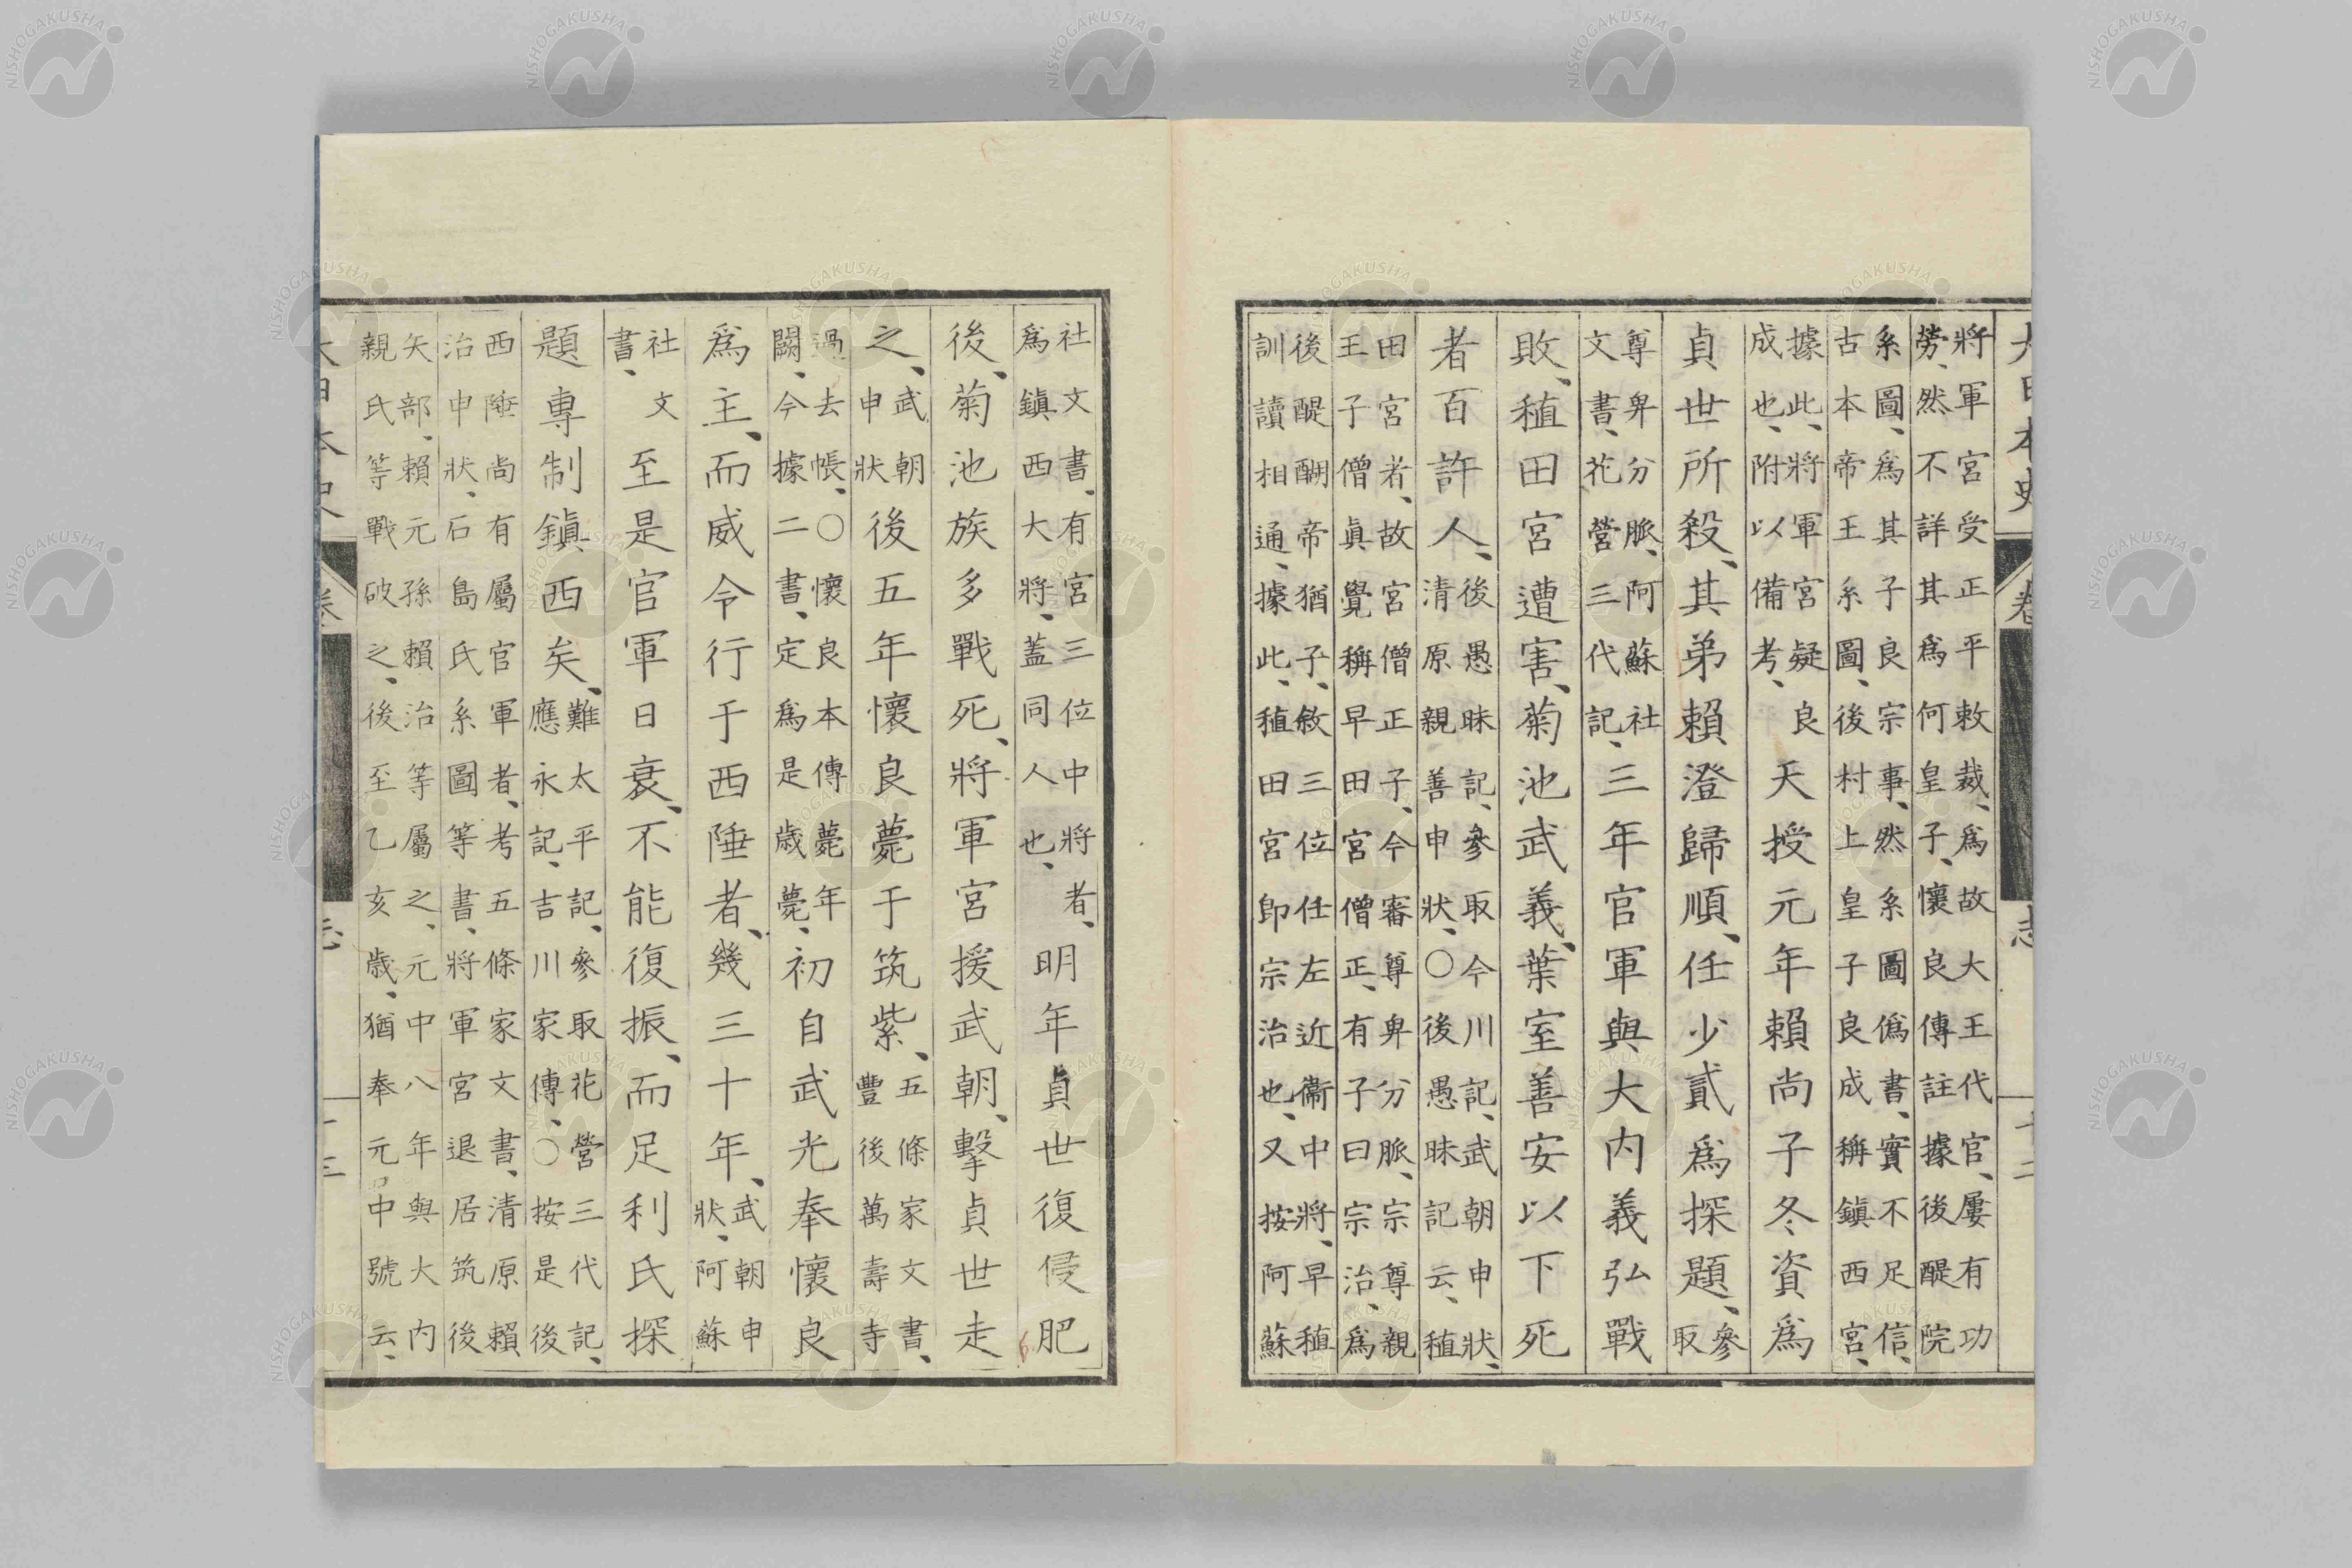 大日本史 卷 志 十二
將軍宮受正平敕裁、爲故大王代官、屢有功
勞、然不詳其爲何皇子、懷良傳註據後醍院
系圖、爲其子良宗事、然系圖僞書、實不足信、
古本帝王系圖、後村上皇子良成稱鎭西宮、
據此、將軍宮疑良
成也、附以備考、
天授元年賴尚子冬資爲
貞世所殺、其弟賴澄歸順、任少貳爲探題、參取
尊卑分脈、阿蘇社
文書、花營三代記、
三年官軍與大内義弘戰
敗、稙田宮遭害、菊池武義、葉室善安以下死
者百許人、
後愚昧記、參取今川記、武朝申狀、
清原親善申狀、〇後愚昧記云、稙
田宮者、故宮僧正子、今審尊卑分脈、宗尊親
王子僧眞覺稱早田宮僧正、有子曰宗治、爲
後醍醐帝猶子、敘三位任左近衞中將、早稙
訓讀相通、據此、稙田宮卽宗治也、又按阿蘇
社文書、有宮三位中將者、
爲鎭西大將、蓋同人也、
明年貞世復侵肥
後、菊池族多戰死、將軍宮援武朝、擊貞世走
之、
武朝
申狀
後五年懷良薨于筑紫、
五條家文書、
豐後萬壽寺
過去帳、〇懷良本傳薨年
闕、今據二書、定爲是歲薨、
初自武光奉懷良
爲主、而威令行于西陲者、幾三十年、
武朝申
狀、阿蘇
社文
書、
至是官軍日衰、不能復振、而足利氏探
題專制鎭西矣、
難太平記、參取花營三代記、
應永記、吉川家家傳、〇按是後
西陲尚有屬官軍者、考五條家文書、清原賴
治申狀、石島氏系圖等書、將軍宮退居筑後
矢部、賴元孫賴治等屬之、元中八年與大内
親氏等戰破之、後至乙亥歲、猶奉元中號云、